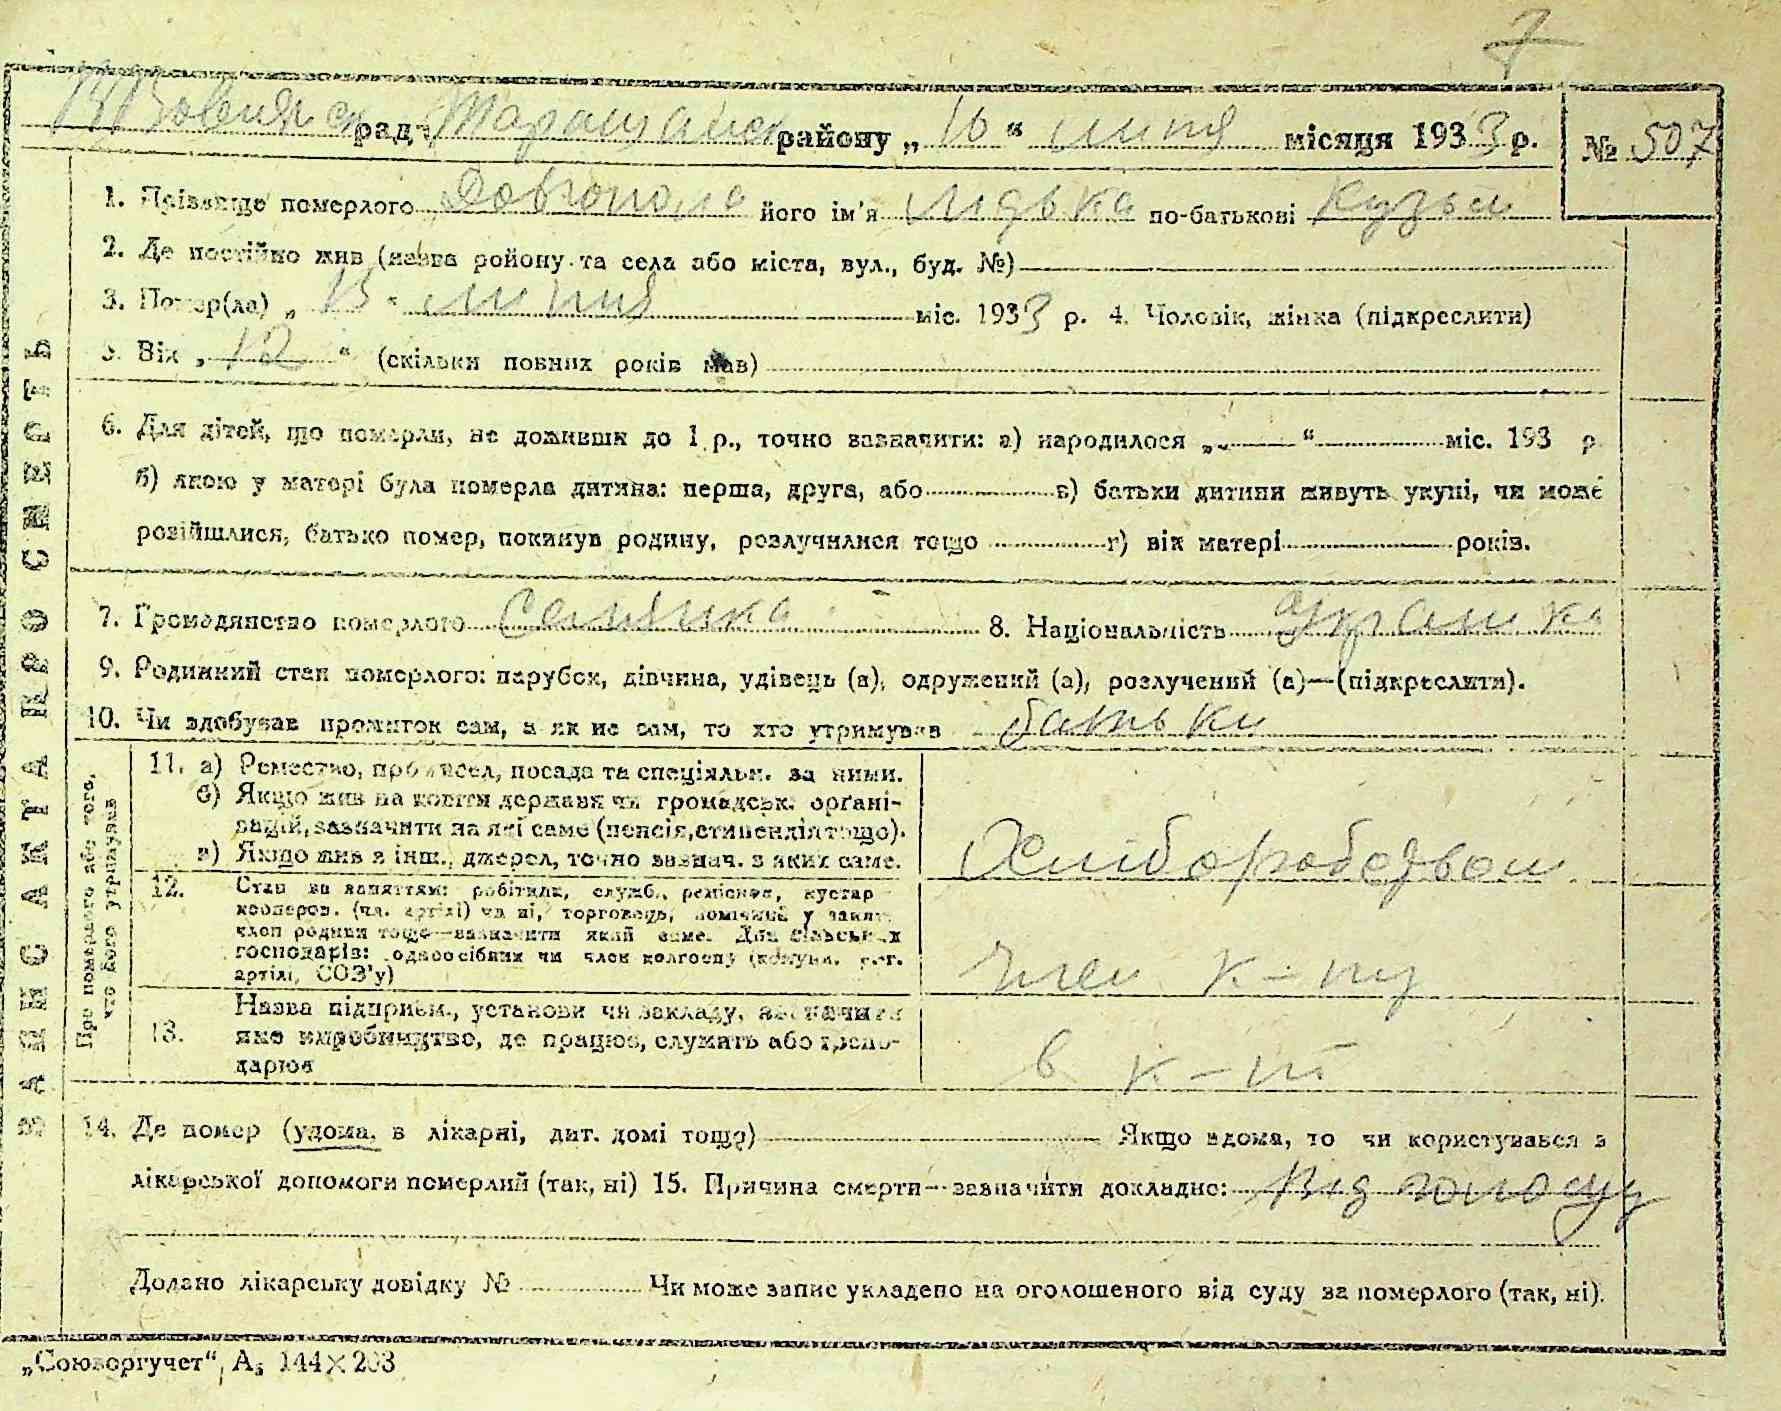 7
ради Таращанськ району „ 16 “ липня місяця 1933 р. № 507
1. Прізвище померлого Довгопола його ім'я Лідька по-батькові Кузьм
2. Де постійно жив (назва ройону та села або міста, вул., буд. №)
3. Помер(ла) „ 15 “ липня міс. 1933 р. 4. Чоловік, жінка (підкреслити)
5. Вік „ 12 “ (скільки повних років мав)
6. Для дітей, що померли, не доживши до 1 р., точно зазначити: а) народилося „ “ міс. 193 р
б) якою у матері була померла дитина: перша, друга, або в) батьки дитини живуть укупі, чи може
розійшлися, батько помер, покинув родину, розлучилися тощо г) вік матері років.
7. Громадянство померлого Селянка 8. Національність Українка
9. Родинний стан померлого: парубок, дівчина, удівець (а), одружений (а), розлучений (а)—(підкреслити).
10. Чи здобував прожиток сам, а як не сам, то хто утримував батьки
ЗАПИС АКТА ПРО СМЕРТЬ
Про померлого або того,
хто його утримував
11. а) Ремество, промисел, посада та спеціяльн. за ними.
б) Якщо жив на кошти держави чи громадськ. орґані-
зацій, зазначити на які саме (пенсія, стипендія тощо).
в) Якщо жив з інш., джерел, точно зазнач. з яких саме.
Хліборобством
12. Стан за заняттям: робітник, служб., ремісник, кустар
кооперов. (чл. артілі) чи ні, торговець, помічник у занят.
член родини тощо—зазначити який саме. Для сільських
господарів: одноосібник чи член колгоспу (комуни,
артілі, СОЗ'у)
член к-пу
13. Назва підприєм., установи чи закладу, зазначити
яке виробництво, де працює, служить або госпо-
дарює
в к-пі
14. Де помер (удома, в лікарні, дит. домі тощо) Якщо вдома, то чи користувався з
лікарської допомоги померлий (так, ні) 15. Причина смерти—зазначити докладно: Від голоду
Додано лікарську довідку № Чи може запис укладено на оголошеного від суду за померлого (так, ні).
„Союзоргучет“, А₅ 144×203